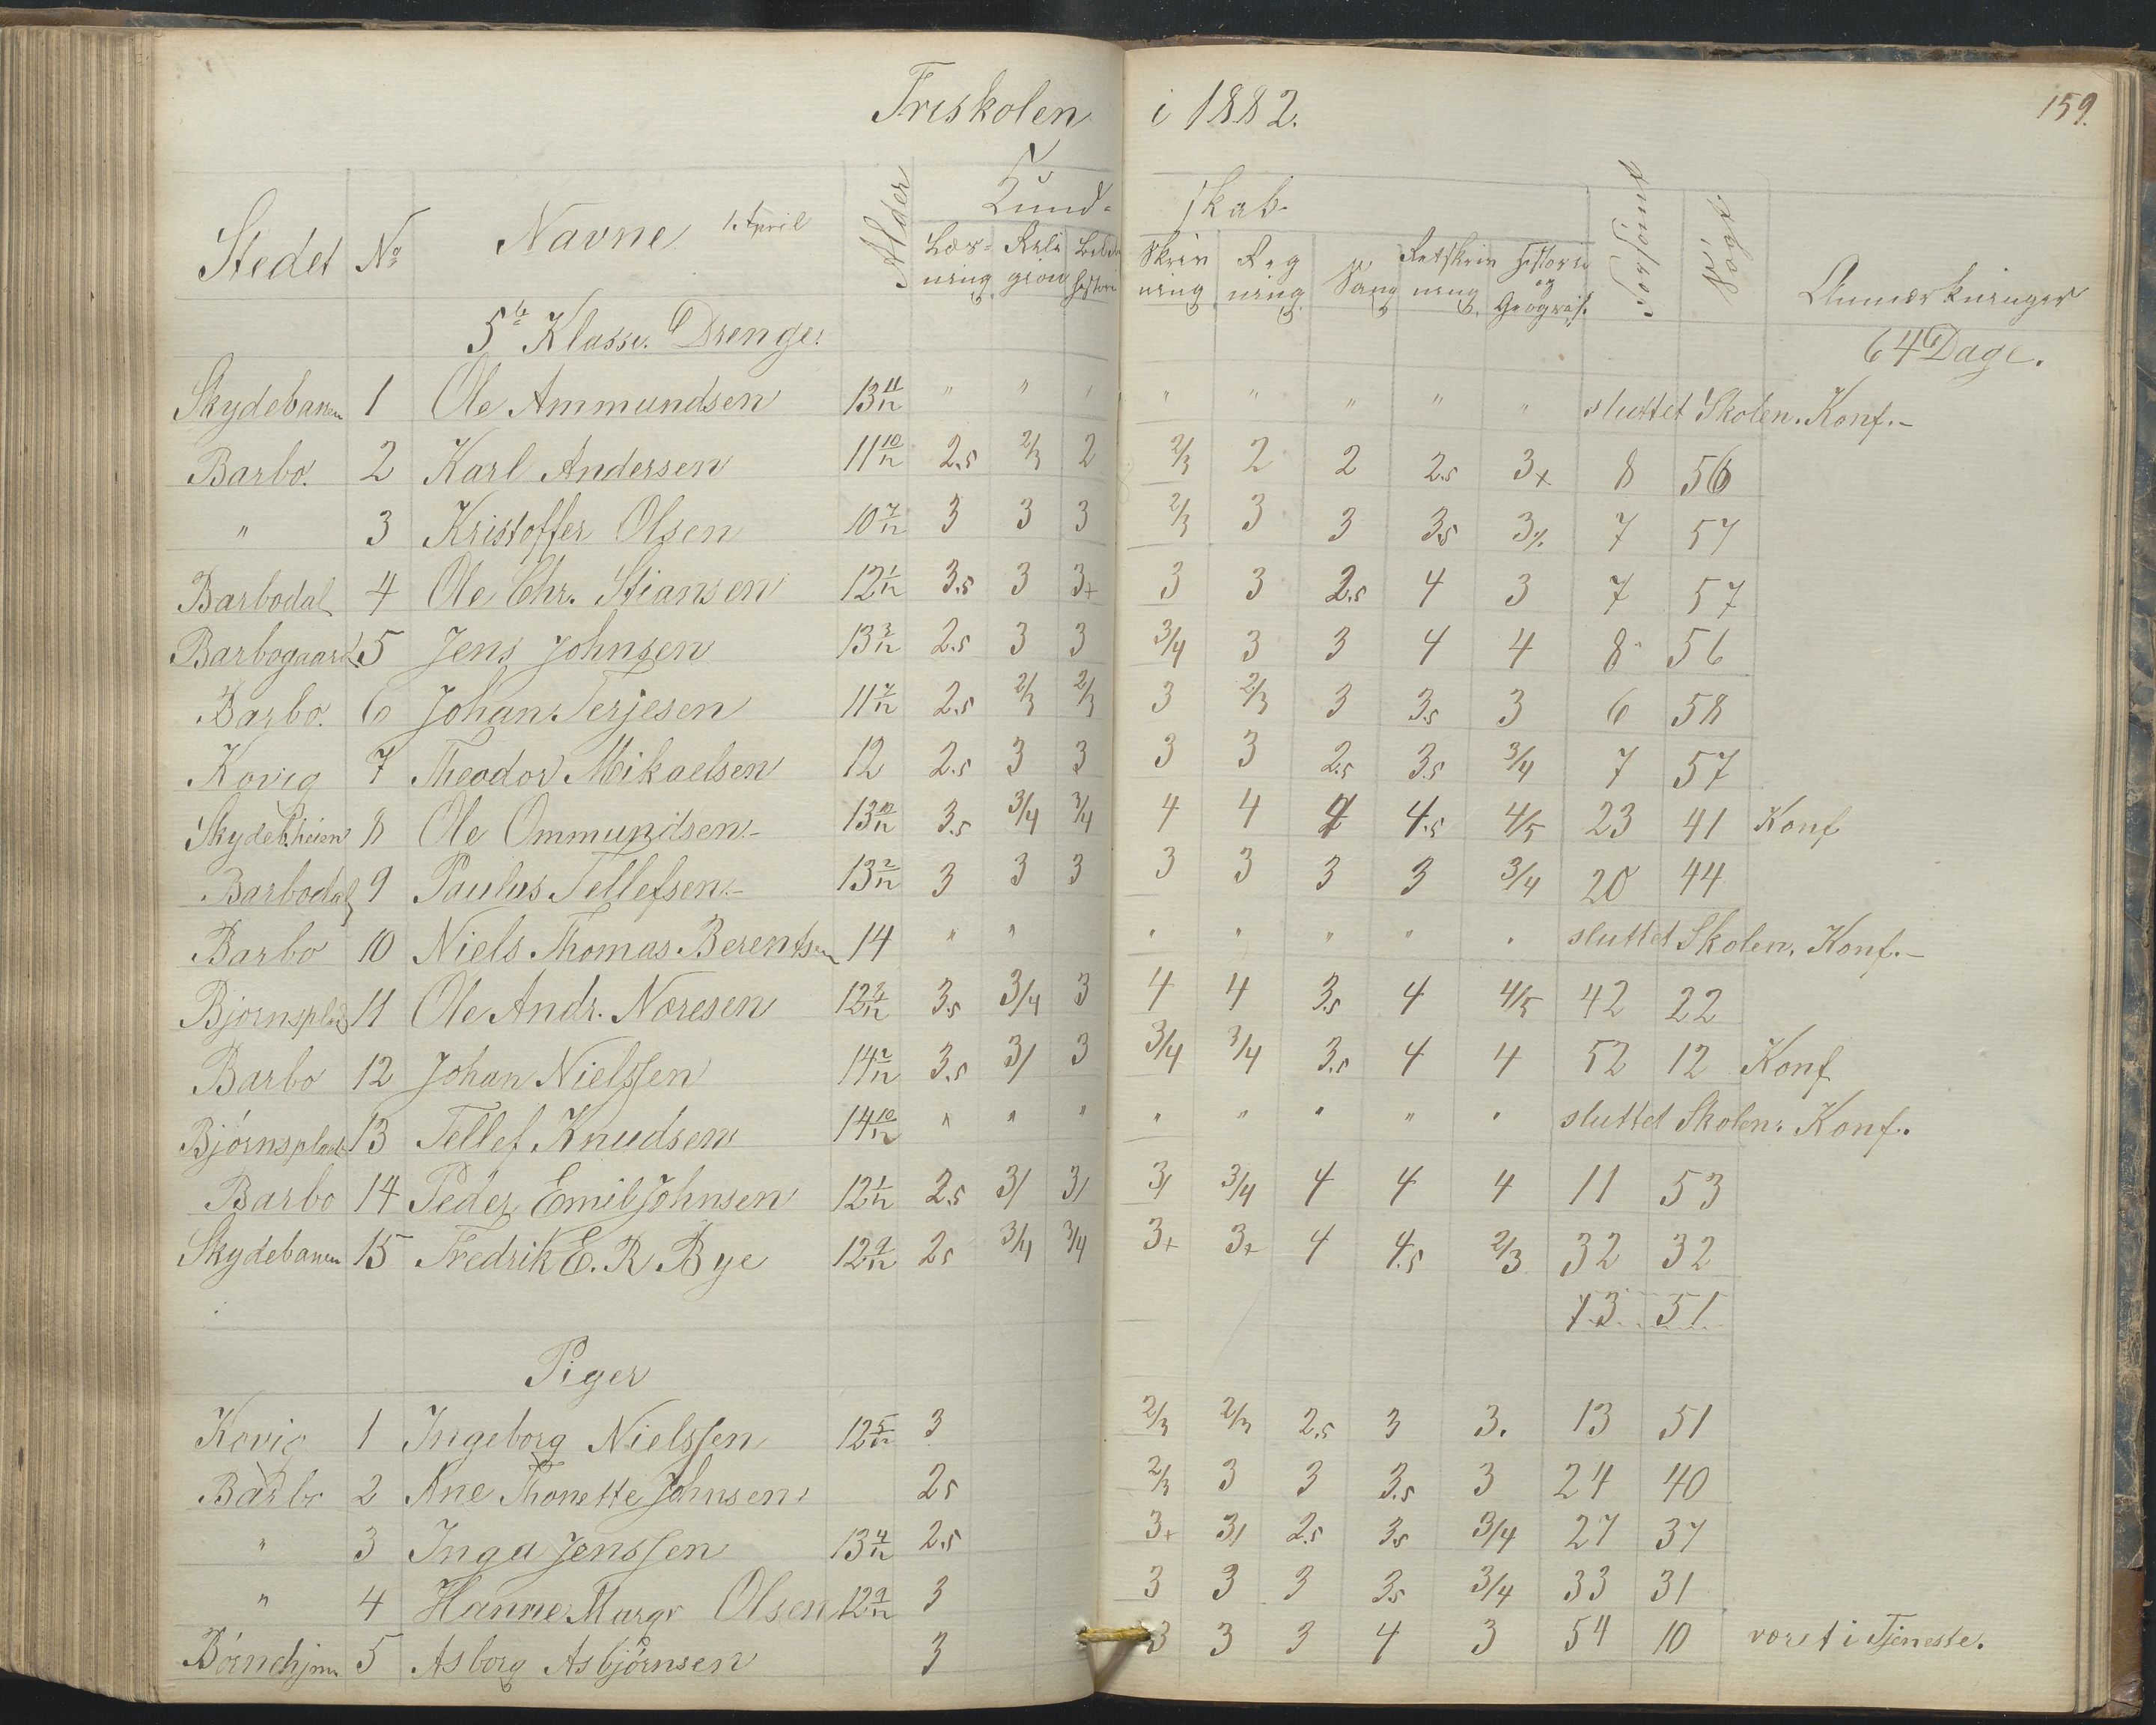 Friskolen i 1882. 159.
Stedet No Navne 1. April Alder Kund- skab. Forsømt Søgt Anmærkninger
Læs- ning Reli gion Bibel historie Skriv ning Reg ning Sang Retskriv ning Historie og Geografi
5te Klasse. Drenge. 64 Dage.
Skydebanen 1 Ole Ammundsen 13 11/12 " " " " " " " " sluttet Skolen. Konf.-
Barbo. 2 Karl Andersen 11 10/12 2.5 2/3 2 2/3 2 2 2.5 3+ 8 56
" 3 Kristoffer Olsen 10 7/12 3 3 3 2/3 3 3 3.5 3/. 7 57
Barbodal 4 Ole Chr. Stiansen 12 1/12 3.5 3 3+ 3 3 2.5 4 3 7 57
Barbogaard 5 Jens Johnsen 13 3/12 2.5 3 3 3/4 3 3 4 4 8 56
Barbo. 6 Johan Terjesen 11 7/12 2.5 2/3 2/3 3 2/3 3 3.5 3 6 58
Kovig 7 Theodor Mikaelsen 12 2.5 3 3 3 3 2.5 3.5 3/4 7 57
Skydeb.heien 8 Ole Ommundsen.- 13 10/12 3.5 3/4 3/4 4 4 4 4.5 4/5 23 41 Konf
Barbodal 9 Paulus Tellefsen.- 13 2/12 3 3 3 3 3 3 3 3/4 20 44
Barbo 10 Niels Thomas Berentsen 14 " " " " " " " sluttet Skolen. Konf.-
Bjornsplds 11 Ole Andr. Noresen 12 /12 3.5 3/4 3 4 4 3.5 4 4/5 42 22
Barbo 12 Johan Nielssen 14 2/12 3.5 3/ 3 3/4 3/4 3.5 4 4 52 12 Konf
Bjørnsplads 13 Tellef Knudsen 14 10/12 " " " " " " " " sluttet Skolen. Konf.
Barbo 14 Peder Emil Johnsen 12 1/12 2.5 3/ 3/ 3/ 3/4 4 4 4 11 53
Skydebanen 15 Fredrik E. R Bye 12 9/12 2.5 3/4 3/4 3+ 3+ 4 4.5 2/3 32 32
13 51
Piger
Kovig 1 Ingeborg Nielssen 12 5/12 3 2/3 2/3 2.5 3 3. 13 51
Barbo 2 Ane Thonette Johnsen 2.5 2/3 3 3 3.5 3 24 40
" 3 Inga Jenssen 13 4/12 2.5 3+ 3/ 2.5 3.5 3/4 27 37
" 4 Hanne Margr Olsen 12 9/12 3 3 3 3 3.5 3/4 33 31
5 Asborg Asbjørnsen 3 3 3 3 4 3 54 10 været i Tjeneste.